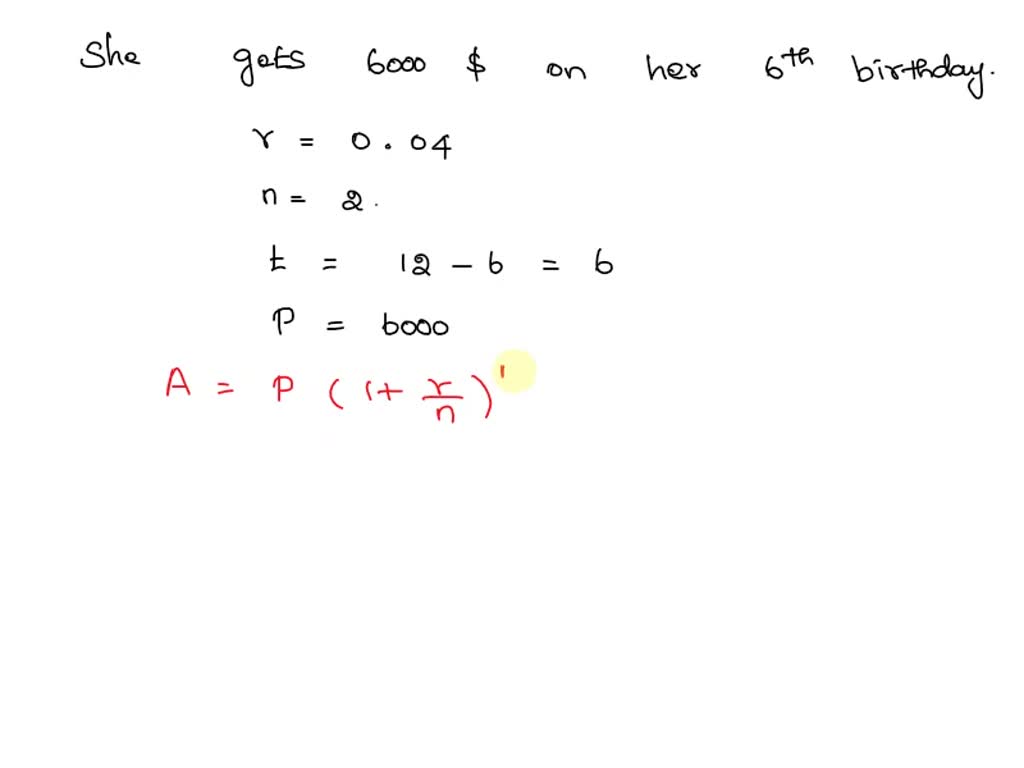 She gets 6000 $ on her 6th birthday.
r = 0.04
n = 2.
t = 12 - 6 = 6
P = 6000
A = P (1 + r/n)